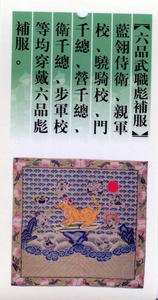 【六品武職彪補服】
藍翎侍衛、親軍
校、驍騎校、門
千總、營千總、
衛千總、步軍校
等均穿戴六品彪
補服。